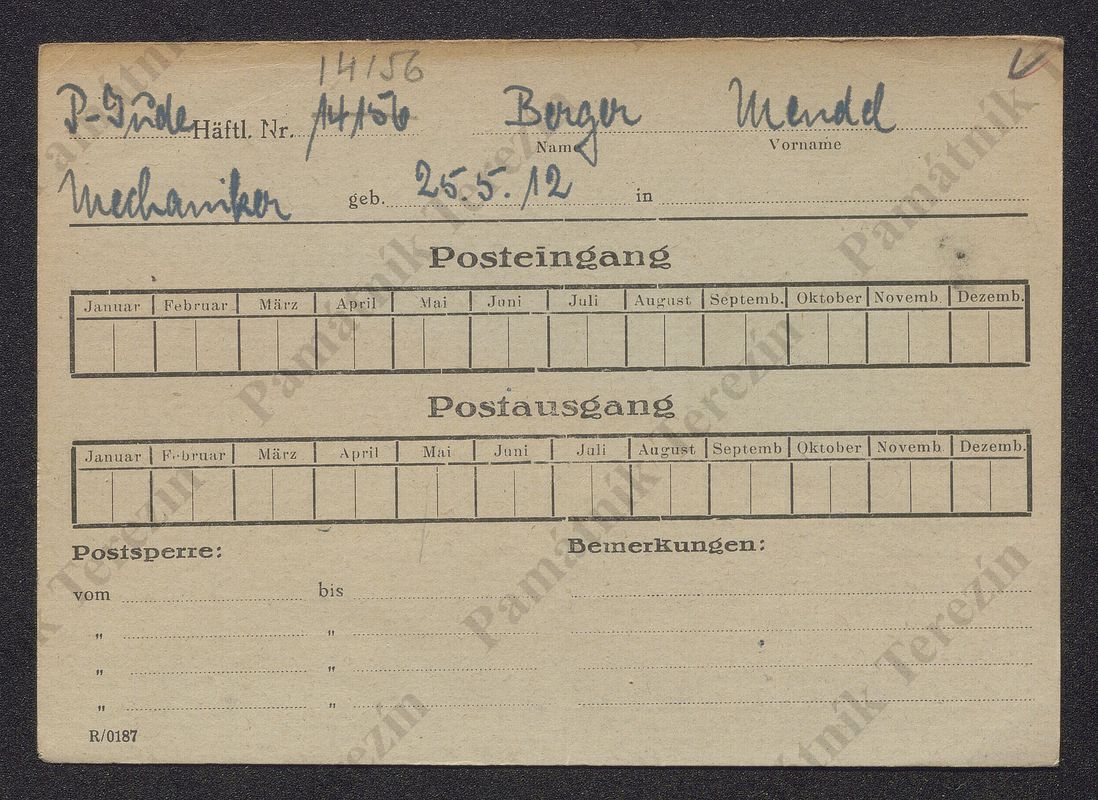 14156
P-Jude Häftl. Nr. 14156 Berger Mendel
Name Vorname
Mechaniker geb. 25.5.12 in
Posteingang
Januar Februar März April Mai Juni Juli August Septemb. Oktober Novemb. Dezemb.
Postausgang
Januar Februar März April Mai Juni Juli August Septemb Oktober Novemb. Dezemb.
Postsperre: Bemerkungen:
vom bis
" "
" "
" "
R/0187
Památník Terezín